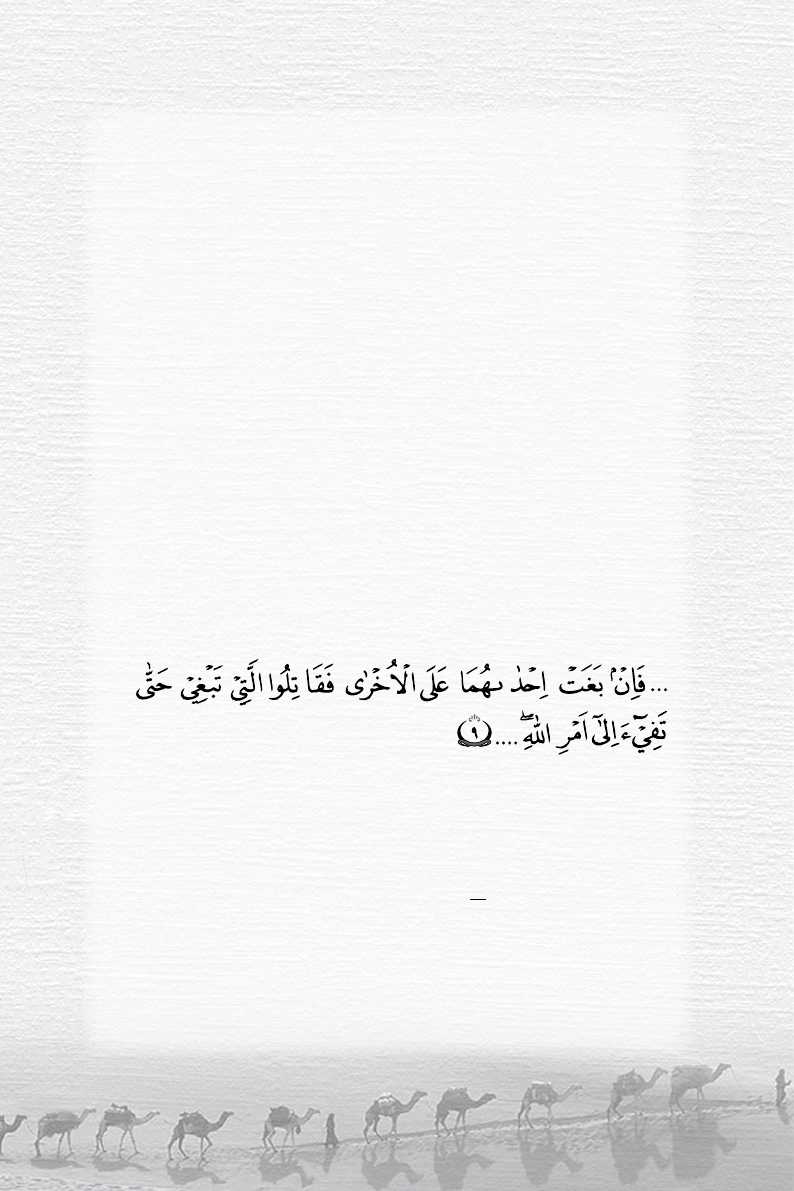 ...فَاِنْۢ بَغَتْ اِحْدٰىهُمَا عَلَى الْاُخْرٰى فَقَاتِلُوا الَّتِيْ تَبْغِيْ حَتّٰى
تَفِيْٓءَ اِلٰٓى اَمْرِ اللّٰهِۖ ....۹
—